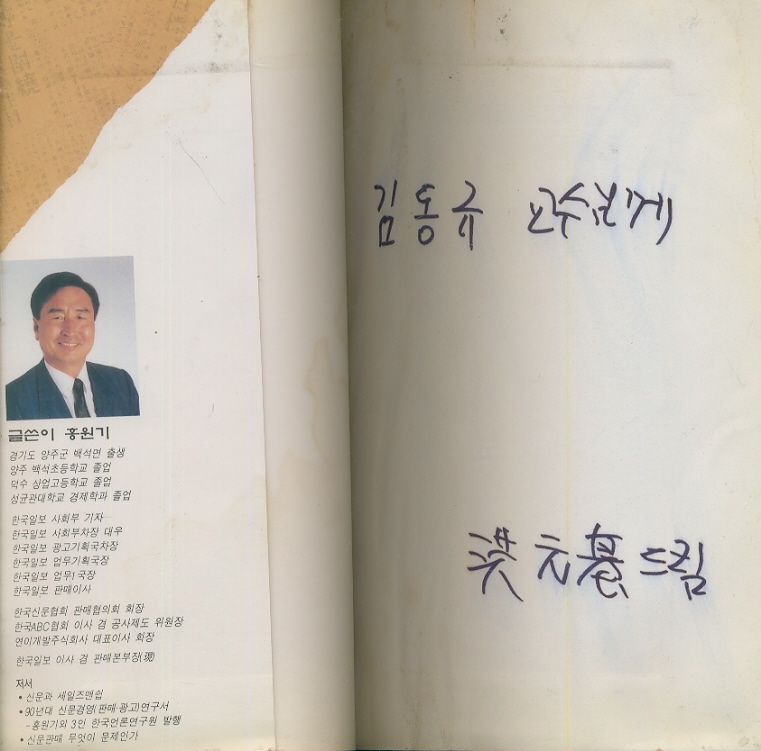 글쓴이 홍원기
경기도 양주군 백석면 출생
양주 백석초등학교 졸업
덕수 상업고등학교 졸업
성균관대학교 경제학과 졸업
한국일보 사회부 기자
한국일보 사회부차장 대우
한국일보 광고기획국차장
한국일보 업무기획국장
한국일보 업무1국장
한국일보 판매이사
한국신문협회 판매협의회 회장
한국ABC협회 이사 겸 공사제도 위원장
연이개발주식회사 대표이사 회장
한국일보 이사 겸 판매본부장(現)
저서
• 신문과 세일즈맨쉽
• 90년대 신문경영(판매·광고)연구서
- 홍원기외 3인 한국언론연구원 발행
• 신문판매 무엇이 문제인가
김동규 교수님께
洪元基 드림